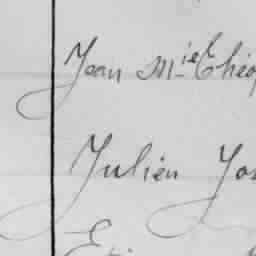 Jean M.ie Théop
Julien Jos